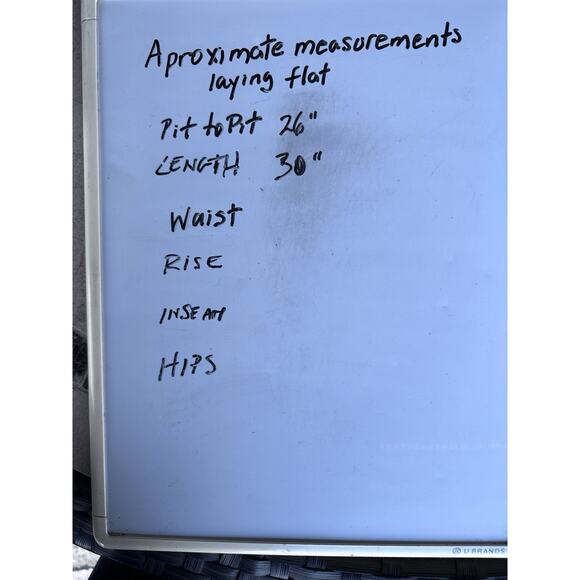 Aproximate measurements
laying flat
Pit to Pit 26"
LENGTH 30"
Waist
RISE
INSEAM
HIPS
U BRANDS